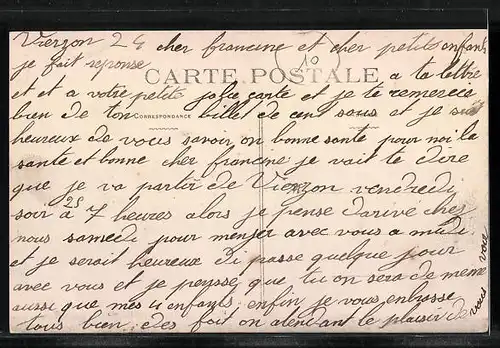 Vierzon 24 cher francine et cher petits enfants
je fait reponse
CARTE POSTALE
10
a ta lettre
et et a votre petits jolie carte et je te remerecs
bien de ton billet de cent sous et je suis
CORRESPONDANCE
heureux de vous savoir on bonne santé pour noi la
santé et bonne cher francine je vait te dire
que je va partir de Vierzon vendredi
25
soir a 7 heures alors je pense darivé chez
nous samedi pour menger avec vous a midi
et je serait heureux du passe quelque jour
avec vous et je pensse que tu on sera de meme
aussi que mes 4 enfants enfin je vous enbrasse
tous bien des foit on atendant le plaisir de
vous voir